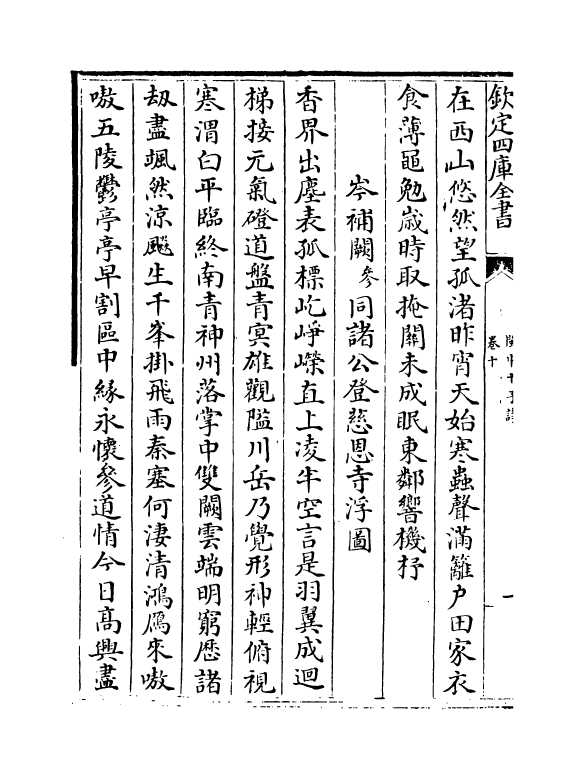 欽定四庫全書
卷十
在西山悠然望孤渚昨宵天始寒蟲聲滿籬户田家衣
食薄黽勉歲時取掩關未成眠東鄰響機杼
岑補闕參同諸公登慈恩寺浮圖
香界出塵表孤標屹崢嶸直上凌半空言是羽翼成迴
梯接元氣磴道盤青冥雄觀隘川岳乃覺形神輕俯視
寒渭白平臨終南青神州落掌中雙闕雲端明窮厯諸
刼盡颯然涼飈生千峯掛飛雨秦塞何淒清鴻鴈來嗷
嗷五陵鬱亭亭早割區中緣永懷參道情今日髙興盡